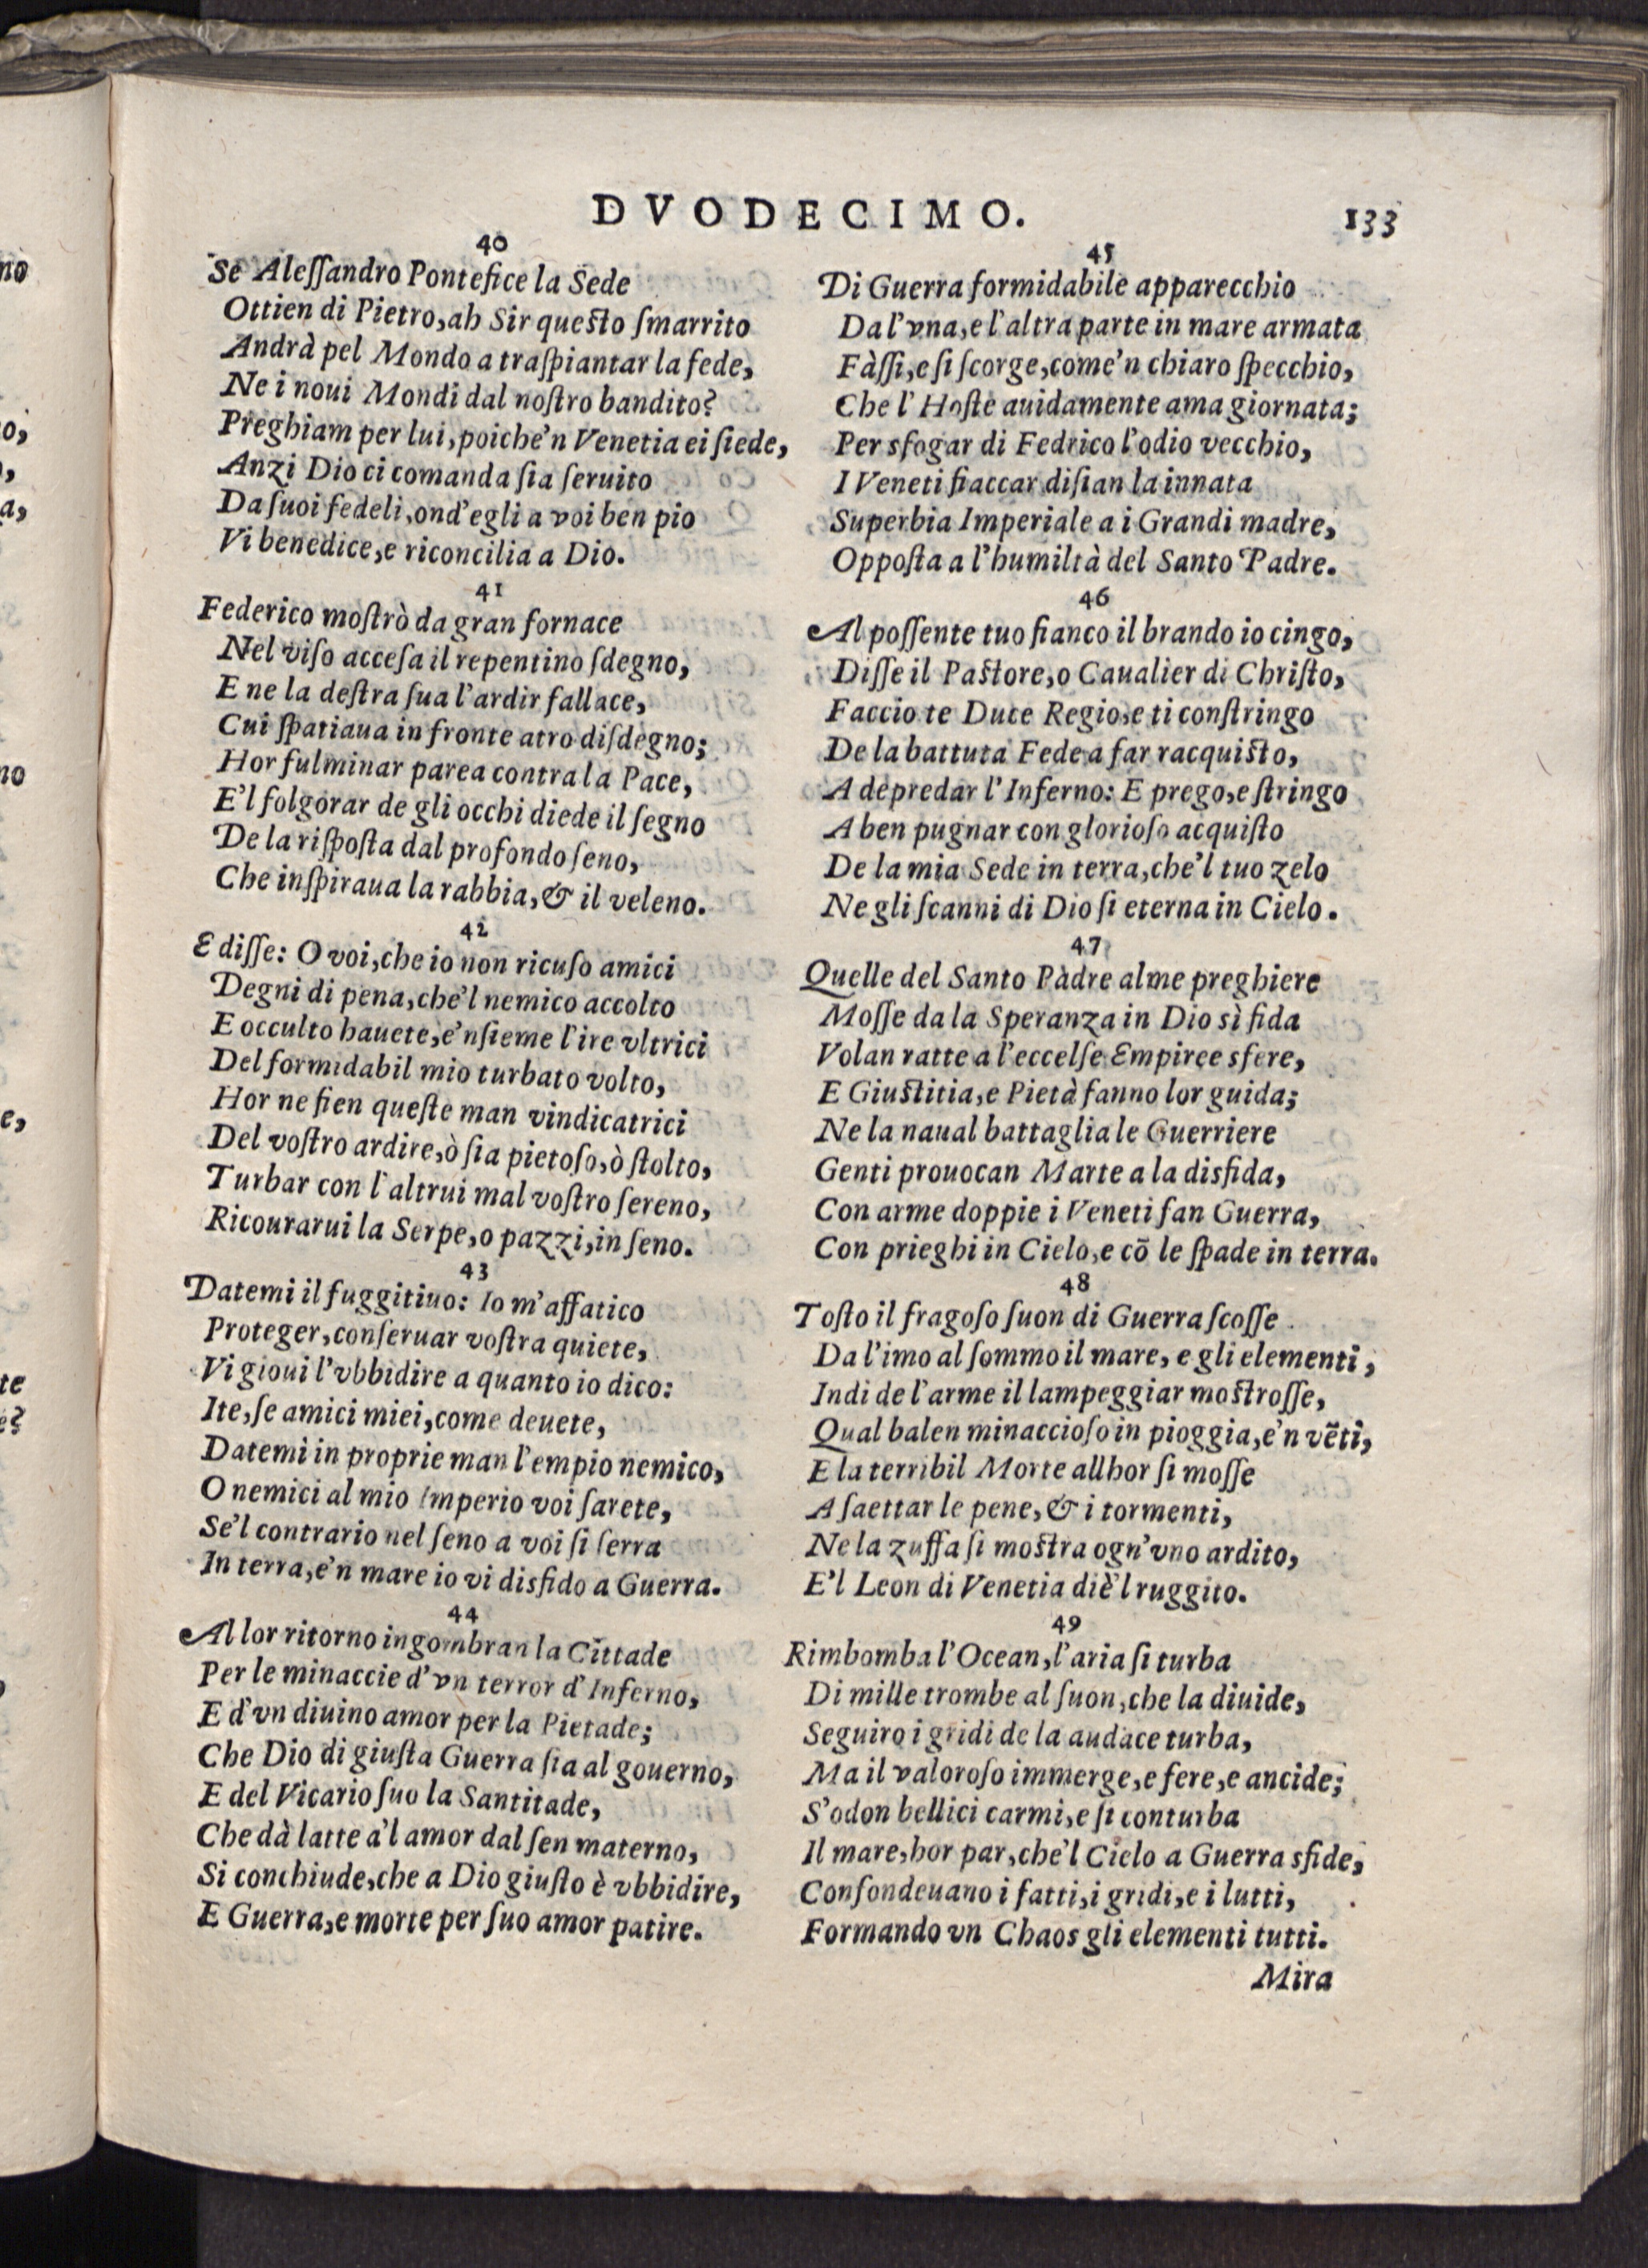 DVODECIMO.
133
40
Se Aleſſandro Pontefice la Sede
Ottien di Pietro, ah Sir queſto ſmarrito
Andrà pel Mondo a traſpiantar la fede,
Ne i noui Mondi dal noſtro bandito?
Preghiam per lui, poiche'n Venetia ei ſiede,
Anzi Dio ci comanda ſia ſeruito
Da ſuoi fedeli, ond'egli a voi ben pio
Vi benedice, e riconcilia a Dio.
41
Federico moſtrò da gran fornace
Nel viſo acceſa il repentino ſdegno,
E ne la deſtra ſua l'ardir fallace,
Cui ſpatiaua in fronte atro diſdegno;
Hor fulminar parea contra la Pace,
E'l folgorar de gli occhi diede il ſegno
De la riſpoſta dal profondo ſeno,
Che inſpiraua la rabbia, & il veleno.
42
E diſſe: O voi, che io non ricuſo amici
Degni di pena, che'l nemico accolto
E occulto hauete, e'nſieme l'ire vltrici
Del formidabil mio turbato volto,
Hor ne fien queſte man vindicatrici
Del voſtro ardire, ò ſia pietoſo, ò ſtolto,
Turbar con l'altrui mal voſtro ſereno,
Ricourarui la Serpe, o pazzi, in ſeno.
43
Datemi il fuggitiuo: Io m'affatico
Proteger, conſeruar voſtra quiete,
Vi gioui l'vbbidire a quanto io dico:
Ite, ſe amici miei, come deuete,
Datemi in proprie man l'empio nemico,
O nemici al mio Imperio voi ſarete,
Se'l contrario nel ſeno a voi ſi ſerra
In terra, e'n mare io vi disfido a Guerra.
44
Al lor ritorno ingombran la Cittade
Per le minaccie d'vn terror d'Inferno,
E d'vn diuino amor per la Pietade;
Che Dio di giuſta Guerra ſia al gouerno,
E del Vicario ſuo la Santitade,
Che dà latte a'l amor dal ſen materno,
Si conchiude, che a Dio giuſto è vbbidire,
E Guerra, e morte per ſuo amor patire.
45
Di Guerra formidabile apparecchio
Da l'vna, e l'altra parte in mare armata
Fàſſi, e ſi ſcorge, come'n chiaro ſpecchio,
Che l'Hoſte auidamente ama giornata;
Per sfogar di Fedrico l'odio vecchio,
I Veneti fiaccar diſian la innata
Superbia Imperiale a i Grandi madre,
Oppoſta a l'humiltà del Santo Padre.
46
Al poſſente tuo fianco il brando io cingo,
Diſſe il Paſtore, o Caualier di Chriſto,
Faccio te Duce Regio, e ti conſtringo
De la battuta Fede a far racquiſto,
A depredar l'Inferno: E prego, e ſtringo
A ben pugnar con glorioſo acquiſto
De la mia Sede in terra, che'l tuo zelo
Ne gli ſcanni di Dio ſi eterna in Cielo.
47
Quelle del Santo Padre alme preghiere
Moſſe da la Speranza in Dio sì fida
Volan ratte a l'eccelſe Empiree sfere,
E Giuſtitia, e Pietà fanno lor guida;
Ne la naual battaglia le Guerriere
Genti prouocan Marte a la disfida,
Con arme doppie i Veneti fan Guerra,
Con prieghi in Cielo, e cō le ſpade in terra.
48
Toſto il fragoſo ſuon di Guerra ſcoſſe
Da l'imo al ſommo il mare, e gli elementi,
Indi de l'arme il lampeggiar moſtroſſe,
Qual balen minaccioſo in pioggia, e'n vēti,
E la terribil Morte allhor ſi moſſe
A ſaettar le pene, & i tormenti,
Ne la zuffa ſi moſtra ogn'vno ardito,
E'l Leon di Venetia diè'l ruggito.
49
Rimbomba l'Ocean, l'aria ſi turba
Di mille trombe al ſuon, che la diuide,
Seguiro i gridi de la audace turba,
Ma il valoroſo immerge, e fere, e ancide;
S'odon bellici carmi, e ſi conturba
Il mare, hor par, che'l Cielo a Guerra sfide,
Confondeuano i fatti, i gridi, e i lutti,
Formando vn Chaos gli elementi tutti.
Mira